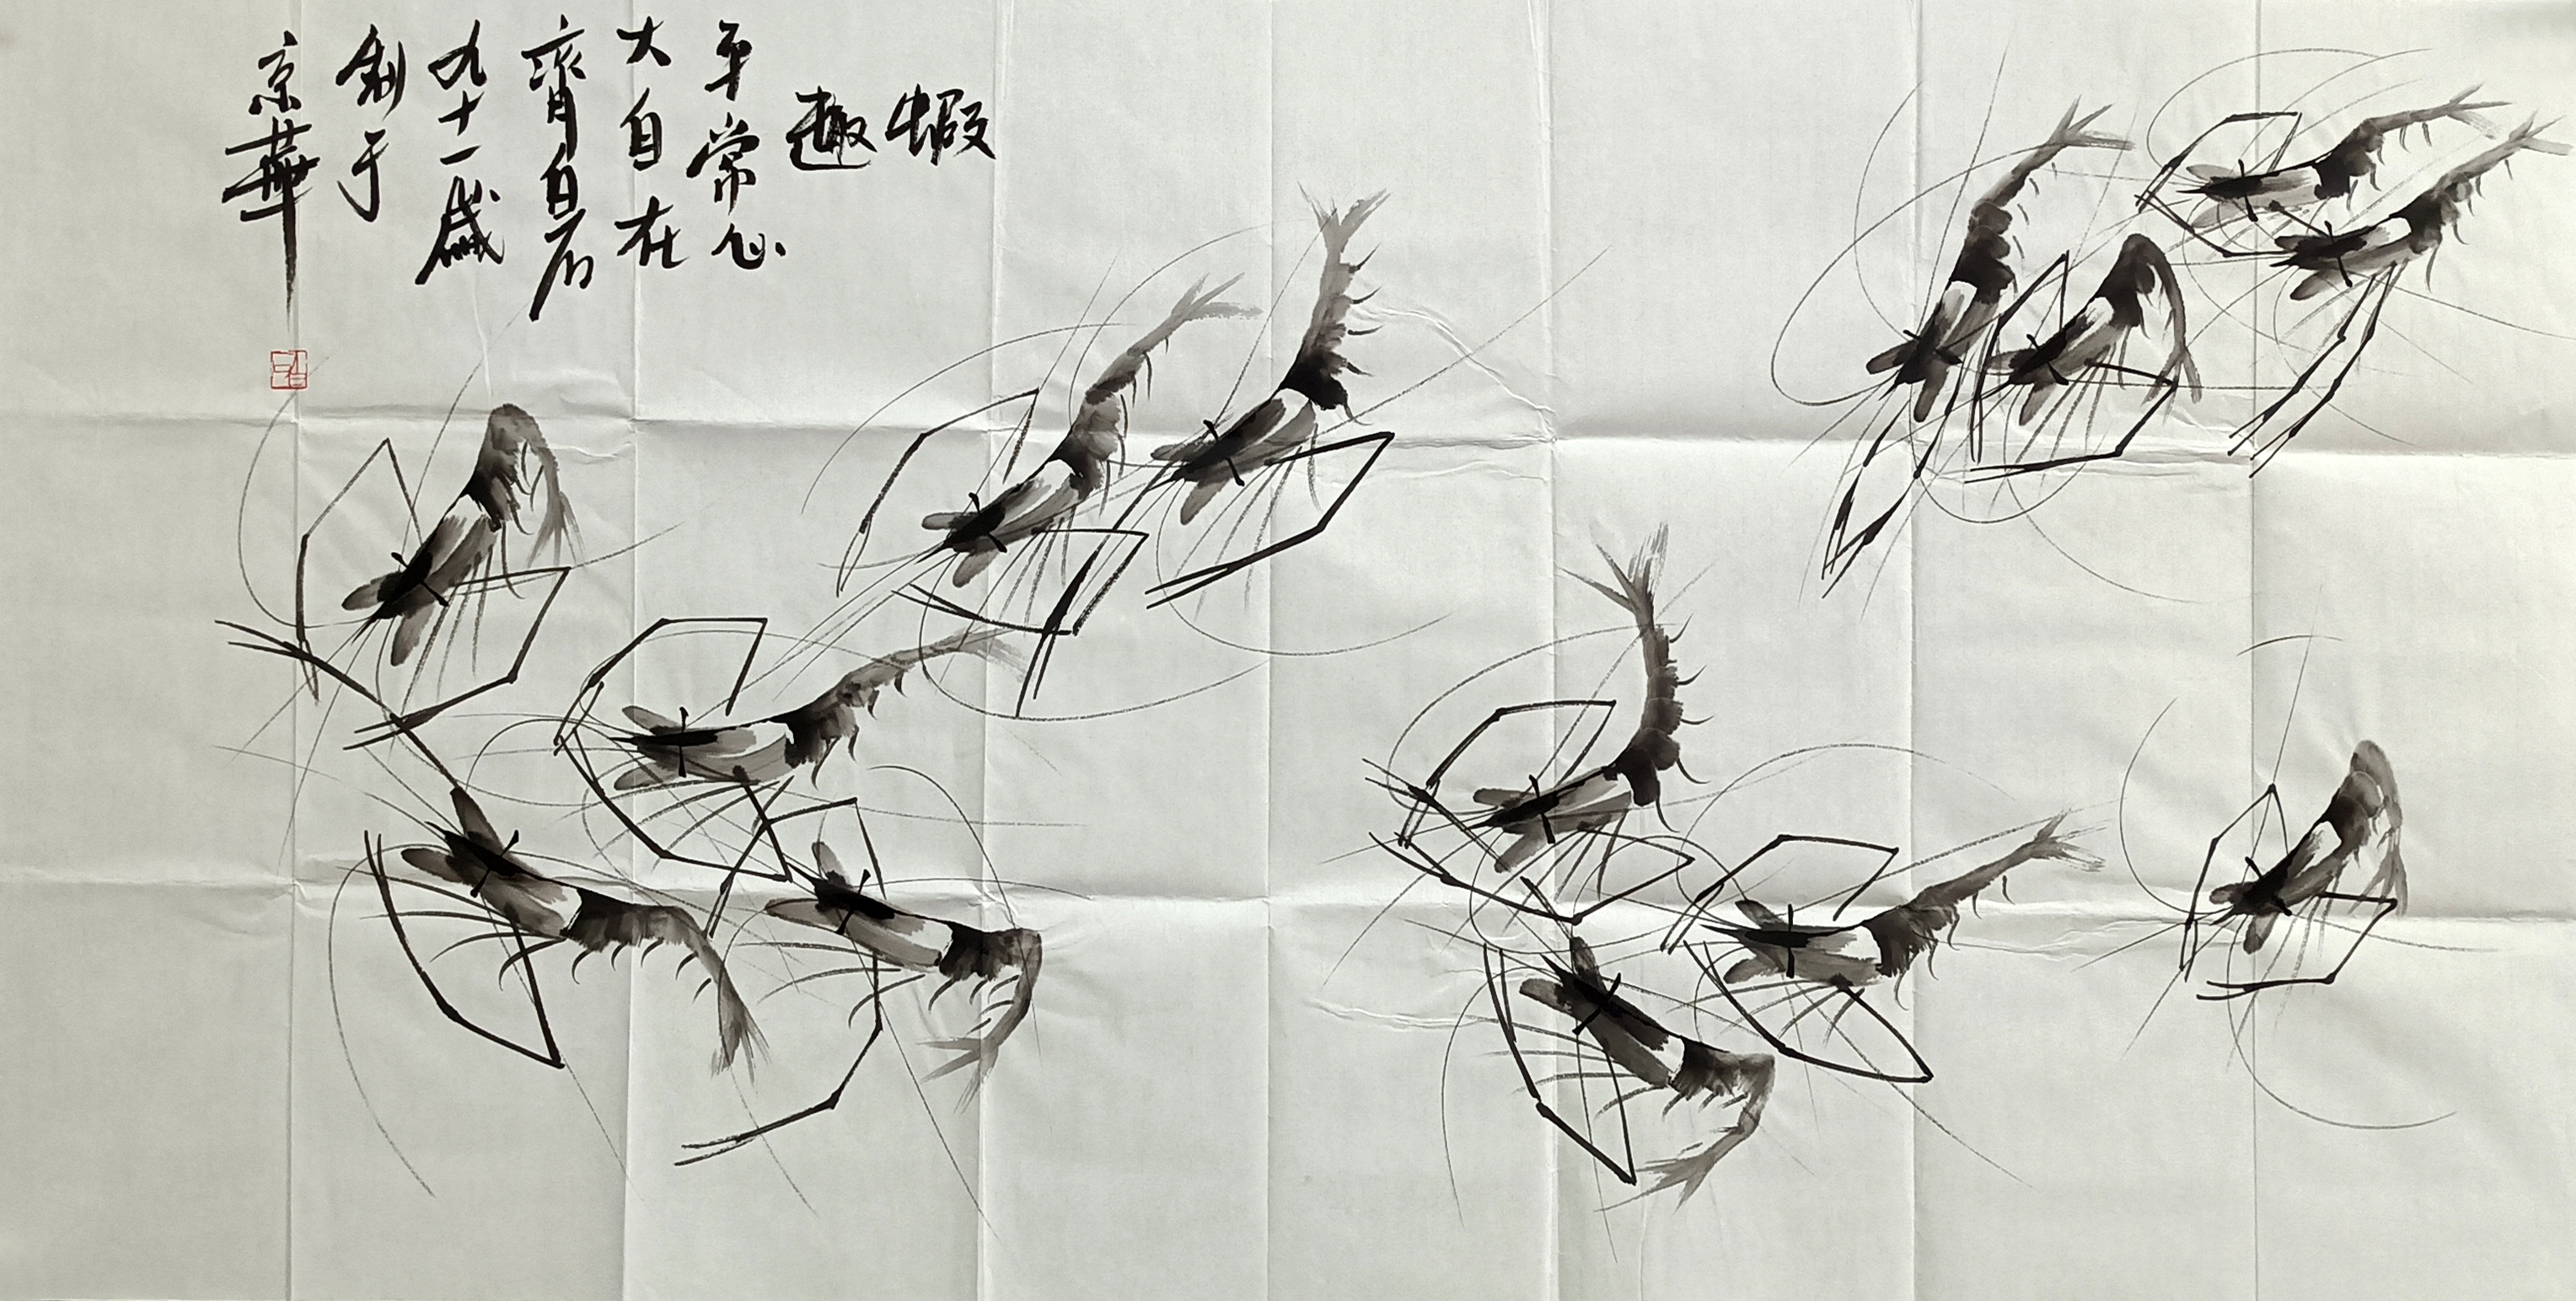 蝦
趣
平常心
大自在
齊白石
九十一歲
創于
京華
白石